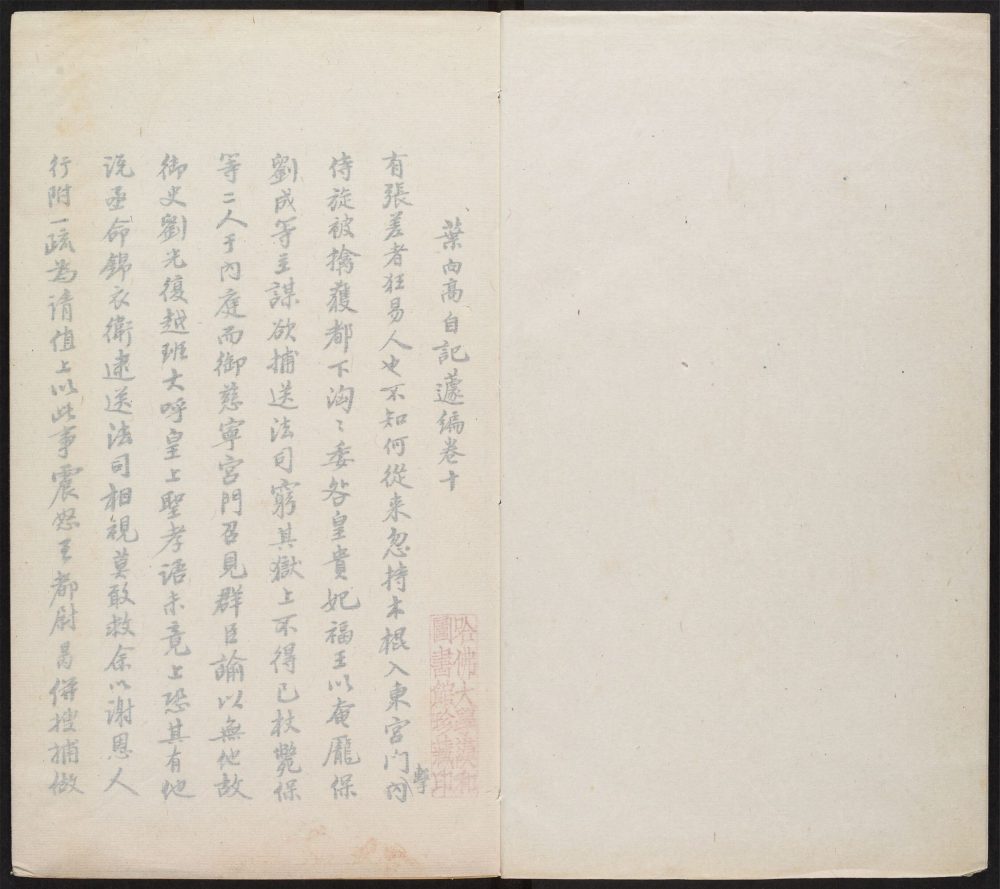 葉向高自記蘧編卷十
有張差者狂易人也不知何從来忽持木棍入東宮門內擊
侍旋被擒獲都下洶〻委咎皇貴妃福王以奄龐保
劉成等主謀欲捕送法司窮其獄上不得已杖斃保
等二人于內庭而御慈寧宮門召見群臣諭以無他故
御史劉光復越班大呼皇上聖孝語未竟上恐其有他
說亟命錦衣衛逮送法司相視莫敢救余以謝恩人
行附一疏為請值上以此事震怒王都尉昺併搜捕做
哈佛大學漢和
圖書館珍藏印